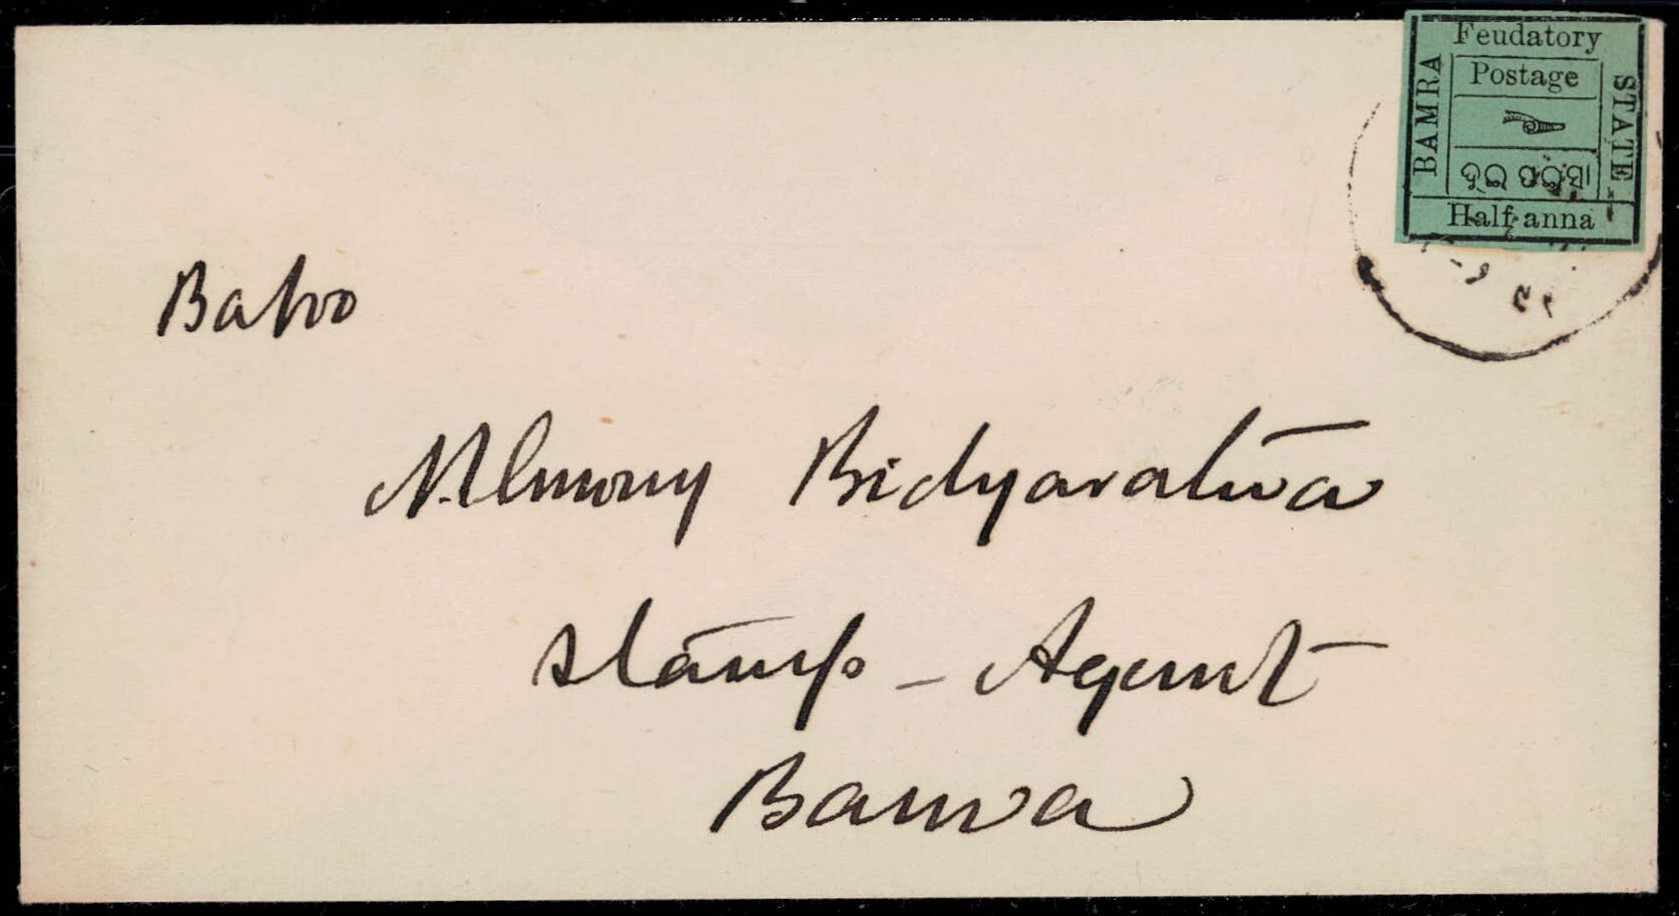 Feudatory
Postage
BAMRA
STATE
Half anna
Baboo
Nilmony Bidyaratna
Stamp - Agent
Bamra